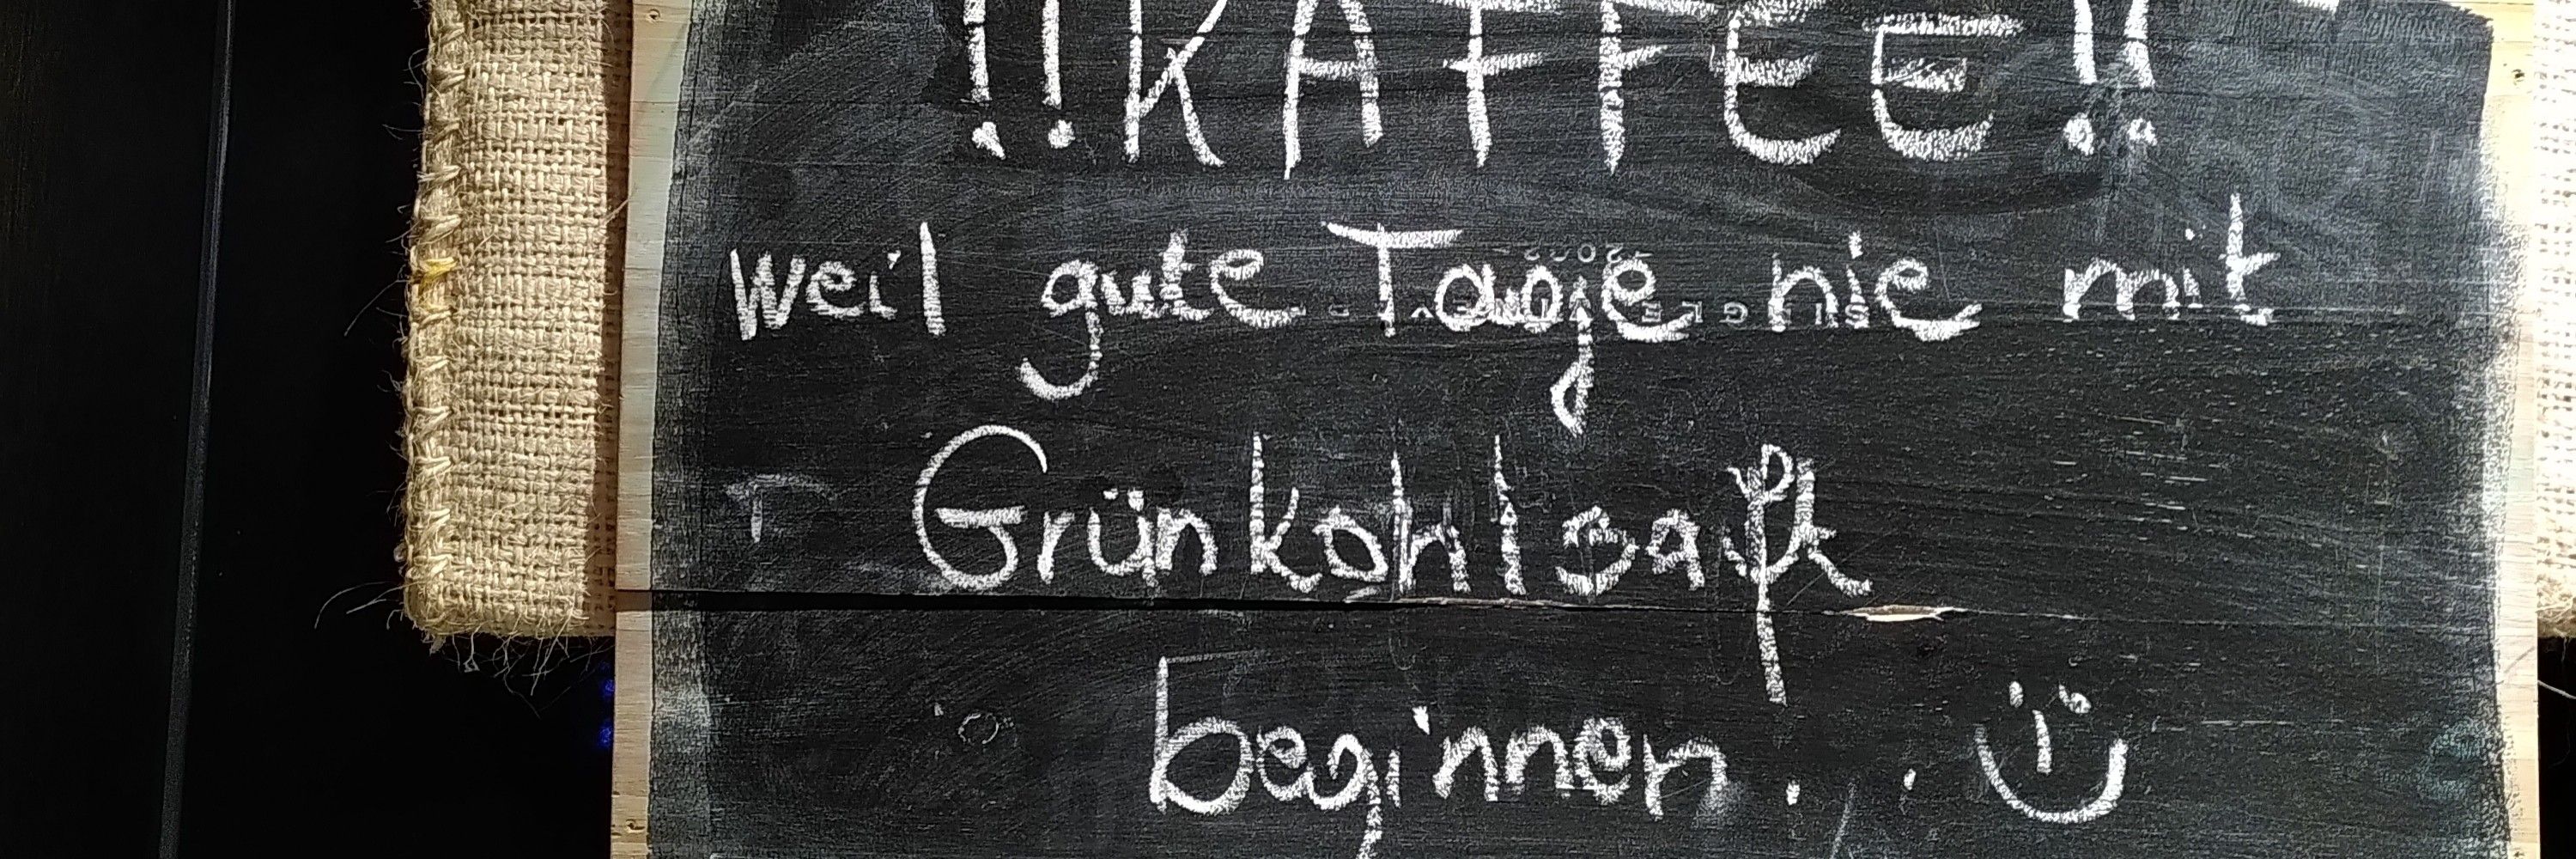 !!KAFFEE!!
weil gute Tage nie mit
Grünkohlsaft
beginnen..